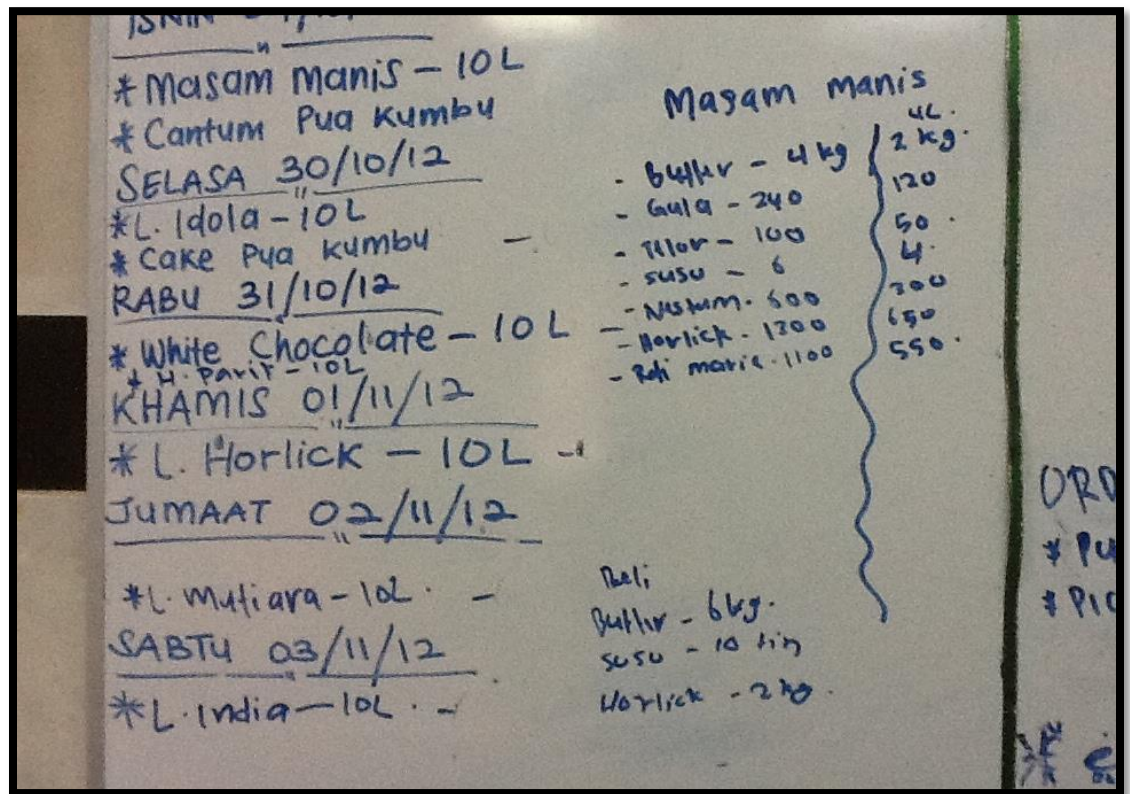 ISNIN
* Masam Manis - 10L
* Cantum Pua Kumbu
SELASA 30/10/12
* L. Idola - 10L
* Cake Pua Kumbu -
RABU 31/10/12
* White Chocolate - 10L -
* H. Parit - 10L
KHAMIS 01/11/12
* L. Horlick - 10L -
JUMAAT 02/11/12
* L. Mutiara - 10L. -
SABTU 03/11/12
* L. India - 10L. -
Masam manis
4L.
- Butter - 4 kg 2 kg.
- Gula - 240 120
- Telor - 100 50.
- susu - 6 4.
- Nestum. 600 300
- Horlick. 1300 650
- Roti marie. 1100 550.
Beli
Butter - 6kg.
susu - 10 tin
Horlick - 2 kg.
ORD
* PU
* PIC